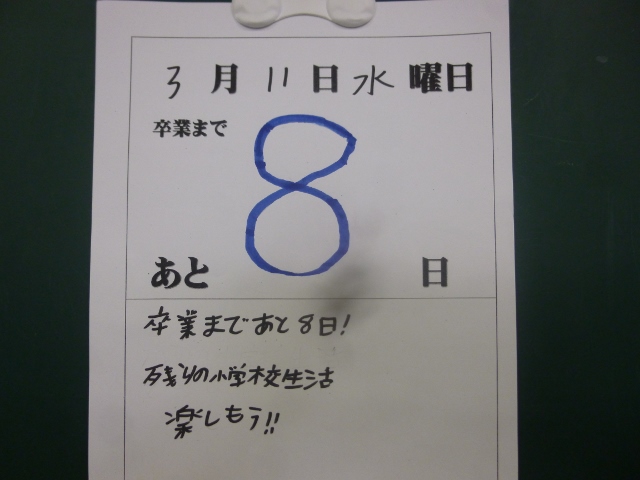 3月11日水曜日
卒業まで
8
あと 日
卒業まであと8日!
残りの小学校生活
楽しもう!!